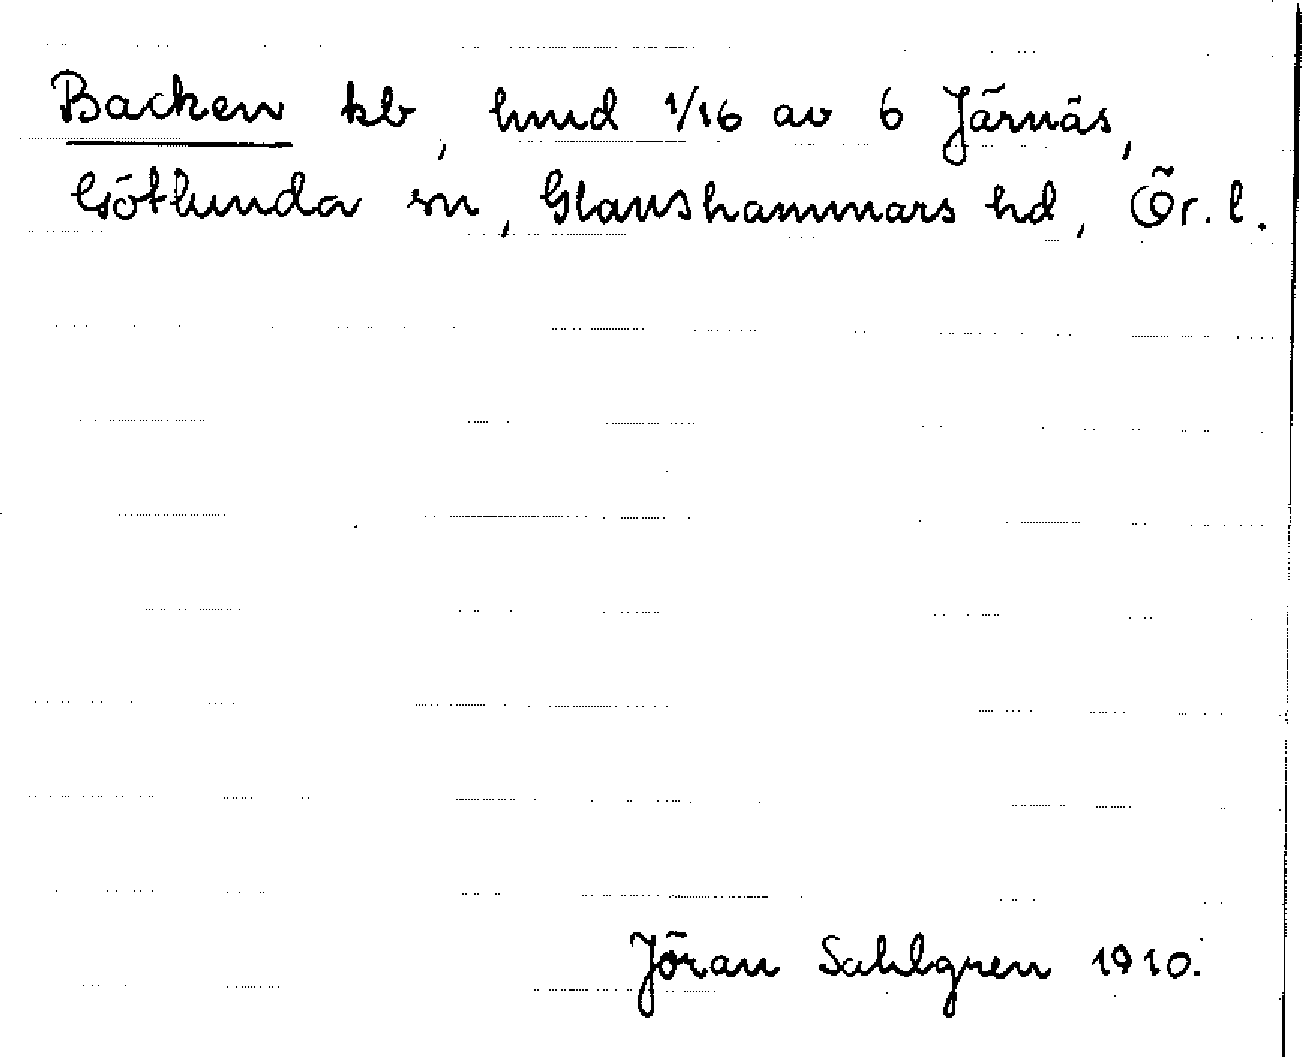 Backen kb, hmd 1/16 av 6 Järnäs,
Götlunda sn, Glanshammars hd, Ör. l.
Jöran Sahlgren 1910.